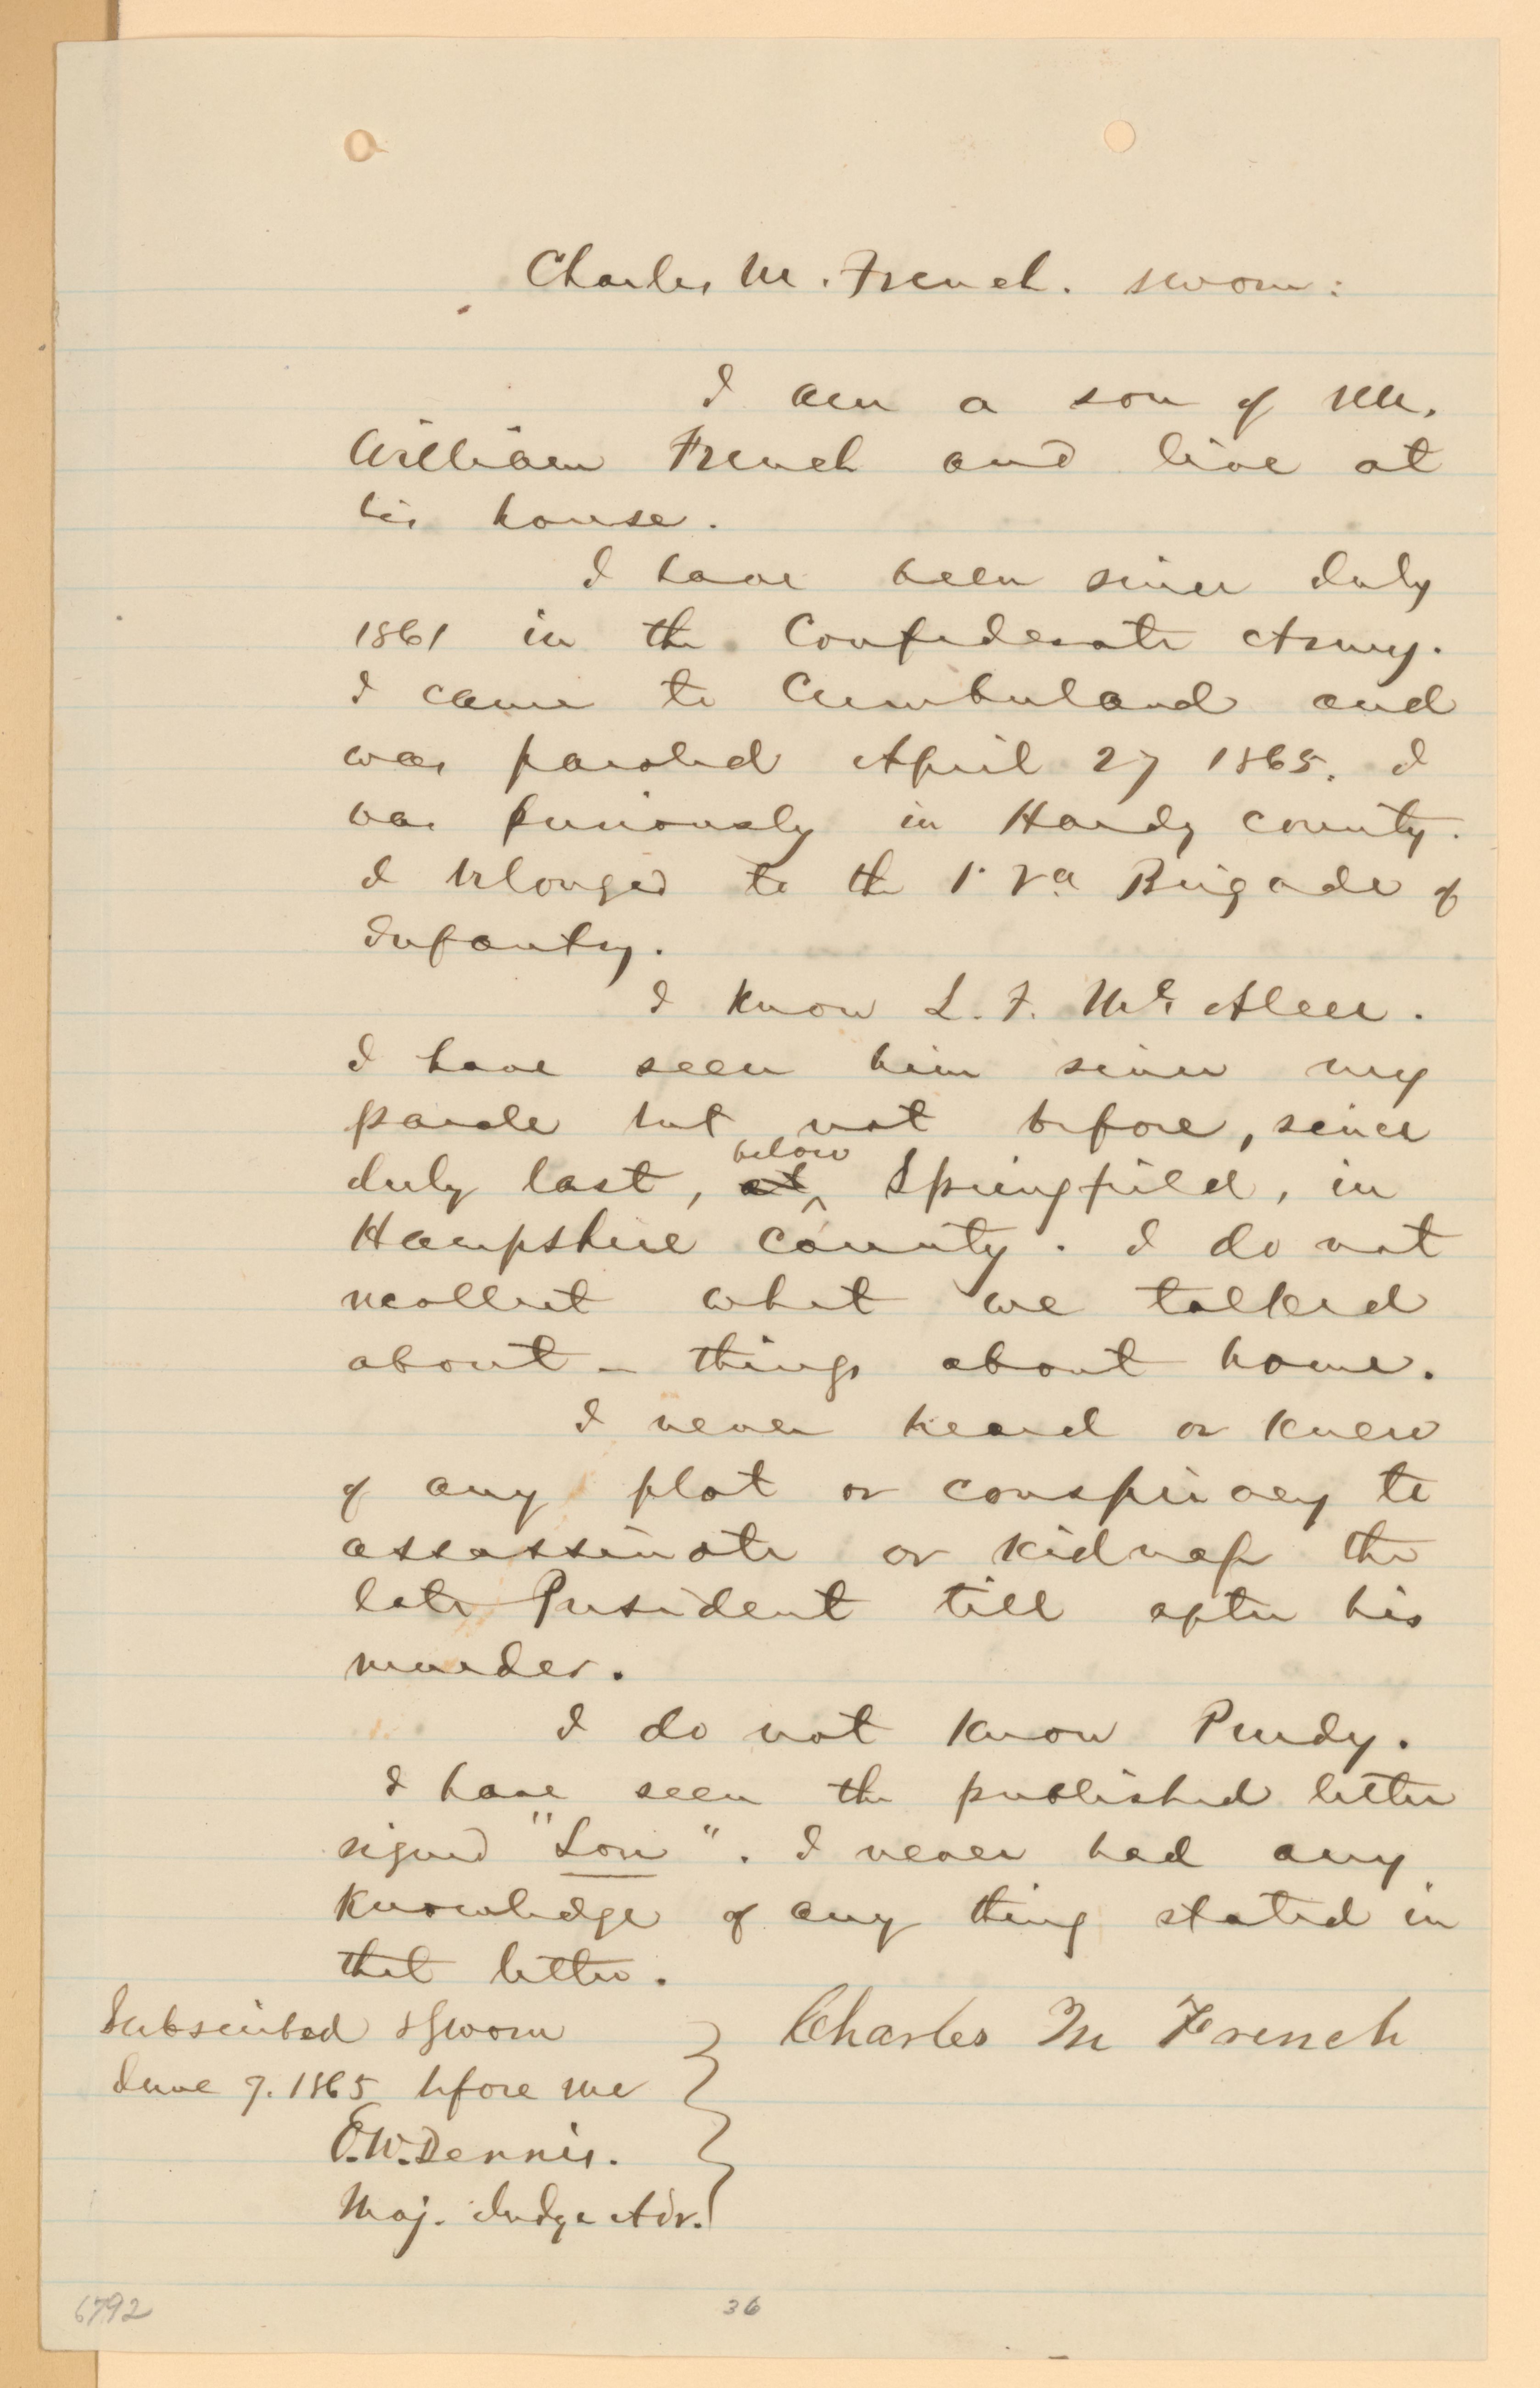 Charles M. French. sworn:
I am a son of Mr.
William French and live at
his house.
I have been since July
1861 in the Confederate Army.
I came to Cumberland and
was paroled April 27 1865. I
was previously in Hardy county.
I belonged to the 1st Va Brigade of
Infantry.
I know L. F. McAleer.
I have seen him since my
parole but not before, since
below
July last, at Springfield, in
Hampshire County. I do not
recollect what we talked
about - things about home.
I never heard or knew
of any plot or conspiracy to
assassinate or kidnap the
late President till after his
murder.
I do not know Purdy.
I have seen the published letter
signed "Lou". I never had any
knowledge of any thing stated in
that letter.
Subscribed & Sworn
June 7. 1865 before me
E. W. Dennis.
Maj. Judge Adv.
Charles M French
6792
36